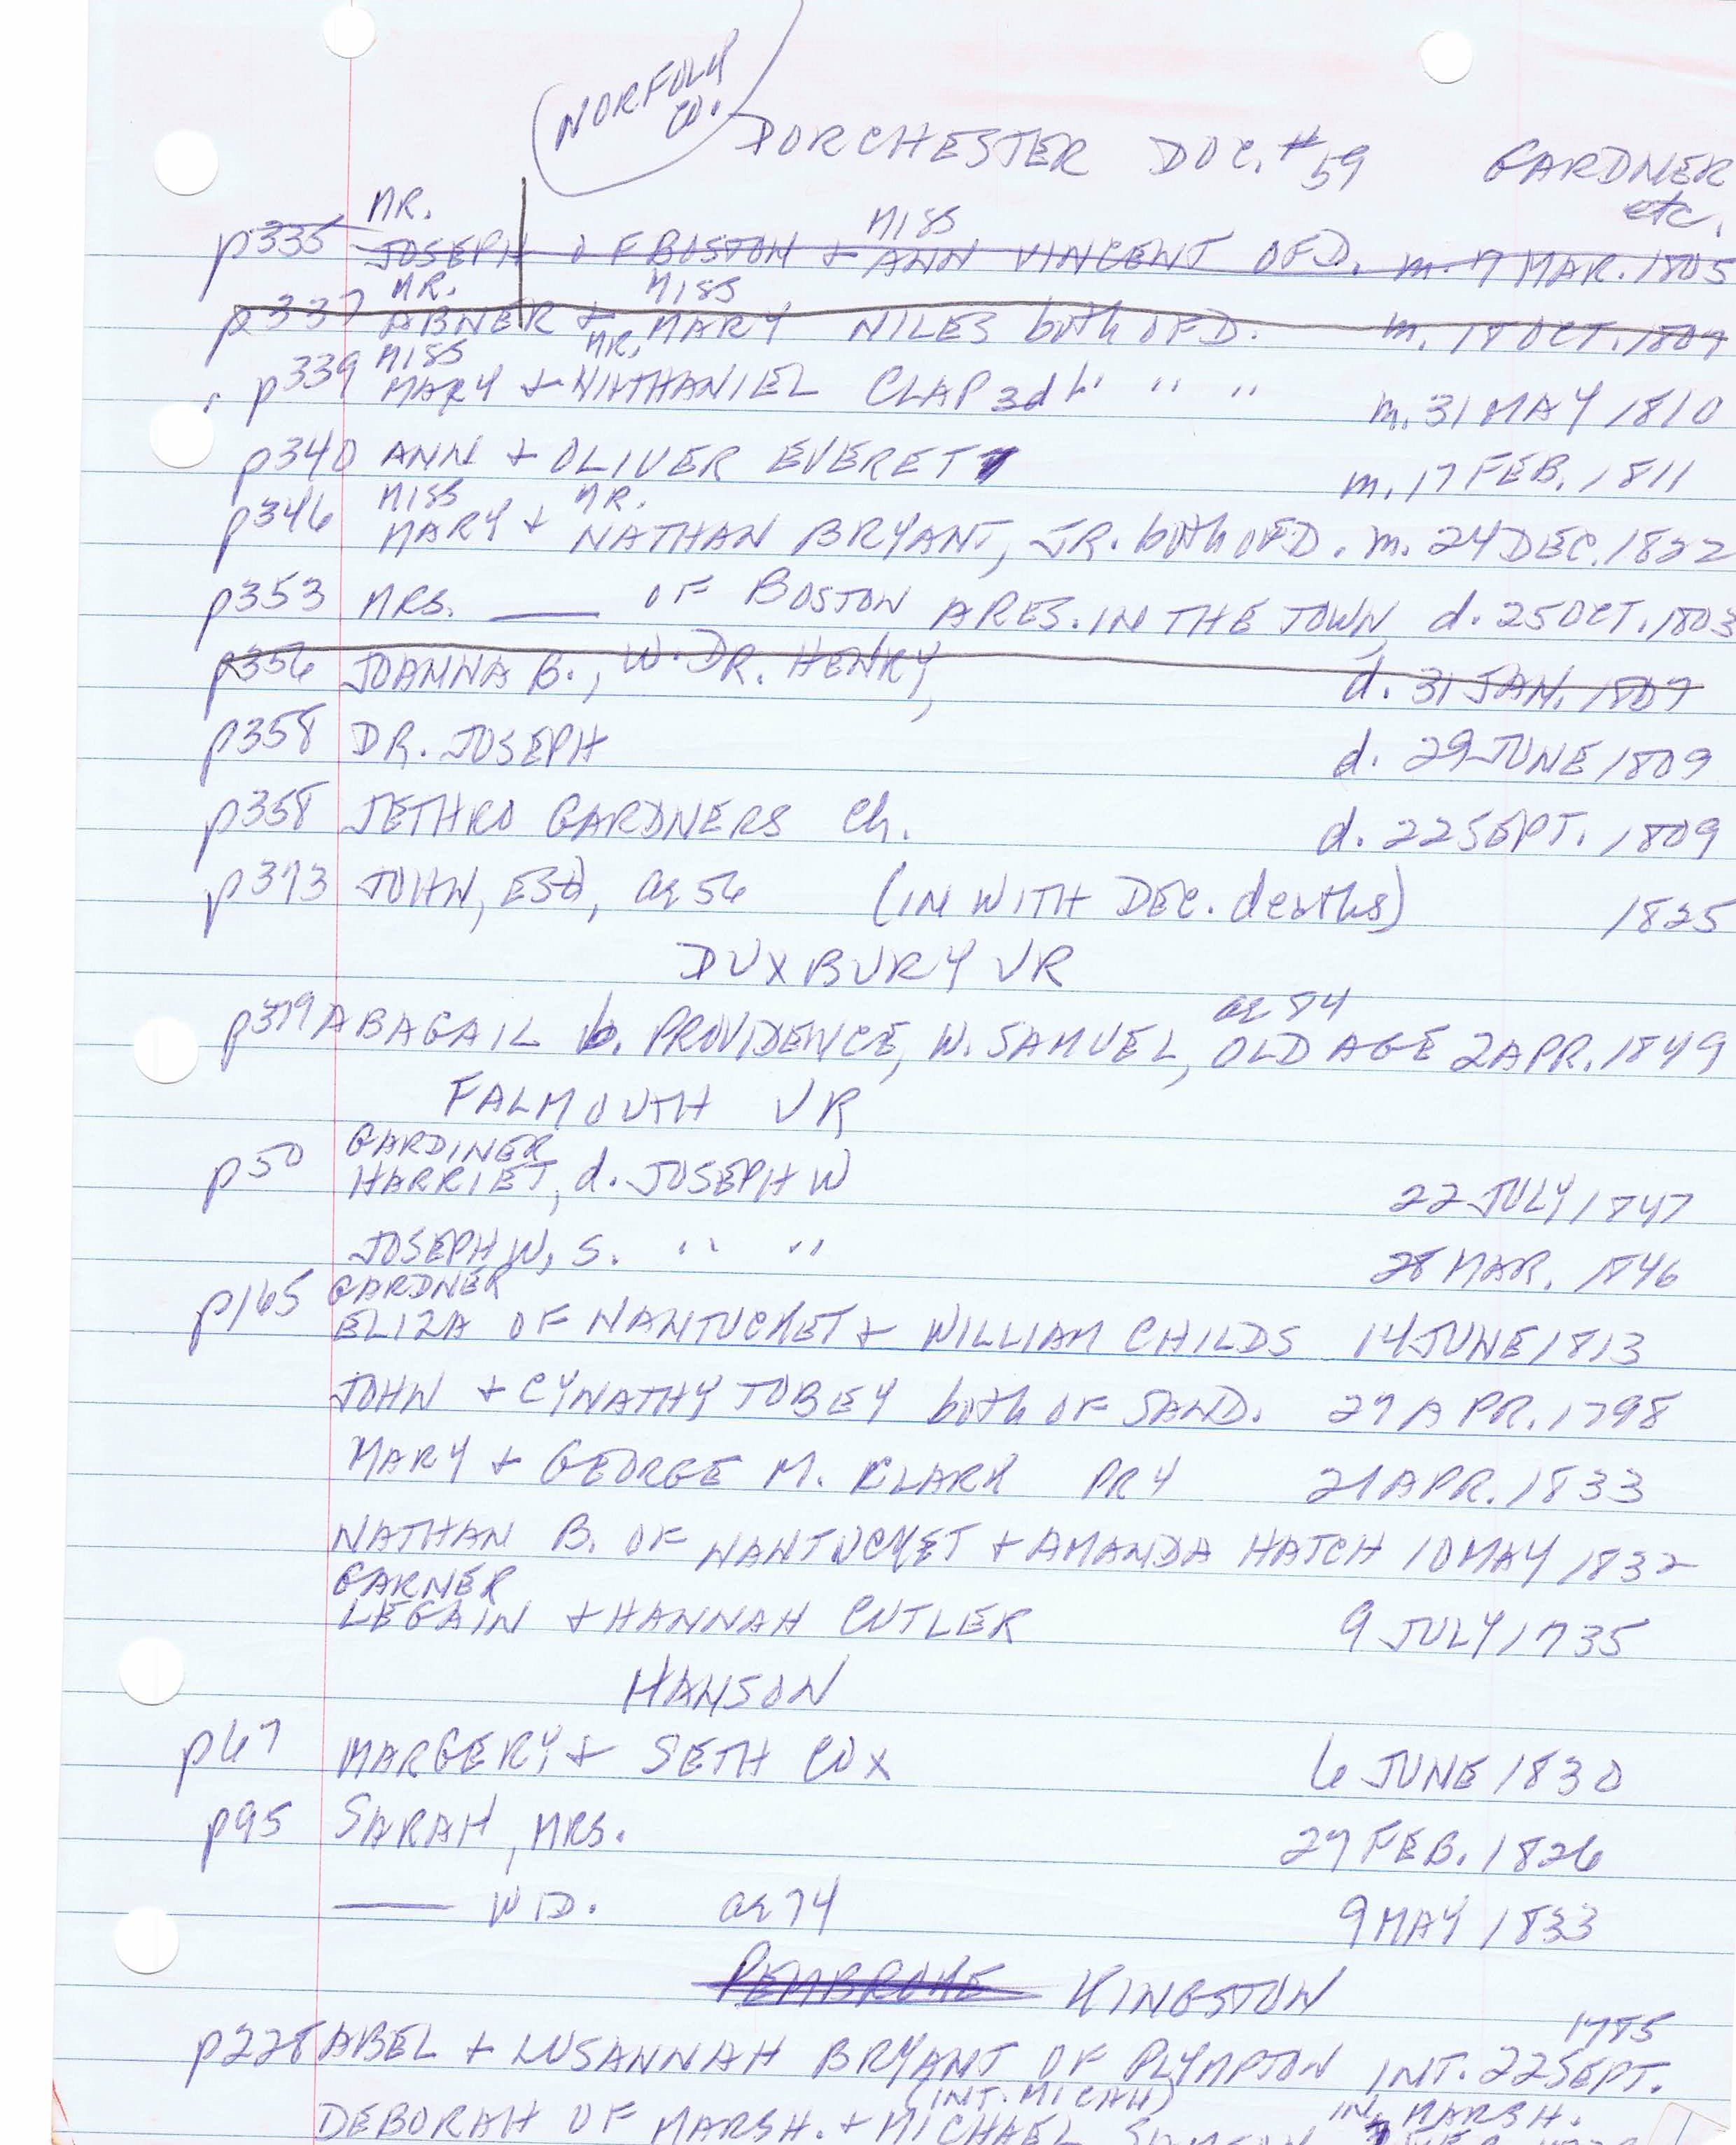 NORFOLK
CO.
DORCHESTER DOC. #59 GARDNER
etc.
MR. MISS
p335 JOSEPH OF BOSTON + ANN VINCENT OF D. m. 7 MAR. 1805
MR. MISS
p337 ABNER + MARY NILES both OF D. m. 18 OCT. 1807
MISS MR.
p339 MARY + NATHANIEL CLAP 3d " " " m. 31 MAY 1810
p340 ANN + OLIVER EVERETT m. 17 FEB. 1811
MISS MR.
p346 MARY + NATHAN BRYANT, JR. both OF D. m. 24 DEC. 1822
p353 MRS. ___ OF BOSTON A RES. IN THE TOWN, d. 25 OCT. 1803
p356 JOANNA B., W. DR. HENRY, d. 31 JAN. 1807
p358 DR. JOSEPH d. 29 JUNE 1809
p358 JETHRO GARDNERS Ch. d. 22 SEPT. 1809
p373 JOHN, ESQ, ae 56 (IN WITH DEC. deaths) 1825
DUXBURY VR
ae 84
p379 ABAGAIL b. PROVIDENCE, W. SAMUEL, OLD AGE 2 APR. 1849
FALMOUTH VR
GARDINER
p50 HARRIET, d. JOSEPH W 22 JULY 1847
JOSEPH W, S. " " 28 MAR. 1846
p165 GARDNER
ELIZA OF NANTUCKET + WILLIAM CHILDS 14 JUNE 1813
JOHN + CYNATHY TOBEY both OF SAND. 27 APR. 1798
MARY + GEORGE M. CLARK PR4 21 APR. 1833
NATHAN B. OF NANTUCKET + AMANDA HATCH 10 MAY 1832
GARNER
LEGAIN + HANNAH CUTLER 9 JULY 1735
HANSON
p67 MARGERY + SETH COX 6 JUNE 1830
p95 SARAH, MRS. 27 FEB. 1826
___ WID. ae 74 9 MAY 1833
PEMBROKE KINGSTON
1785
p228 ABEL + LUSANNAH BRYANT OF PLYMPTON INT. 22 SEPT.
(INT. MICAH) IN MARSH.
DEBORAH OF MARSH. + MICHAEL